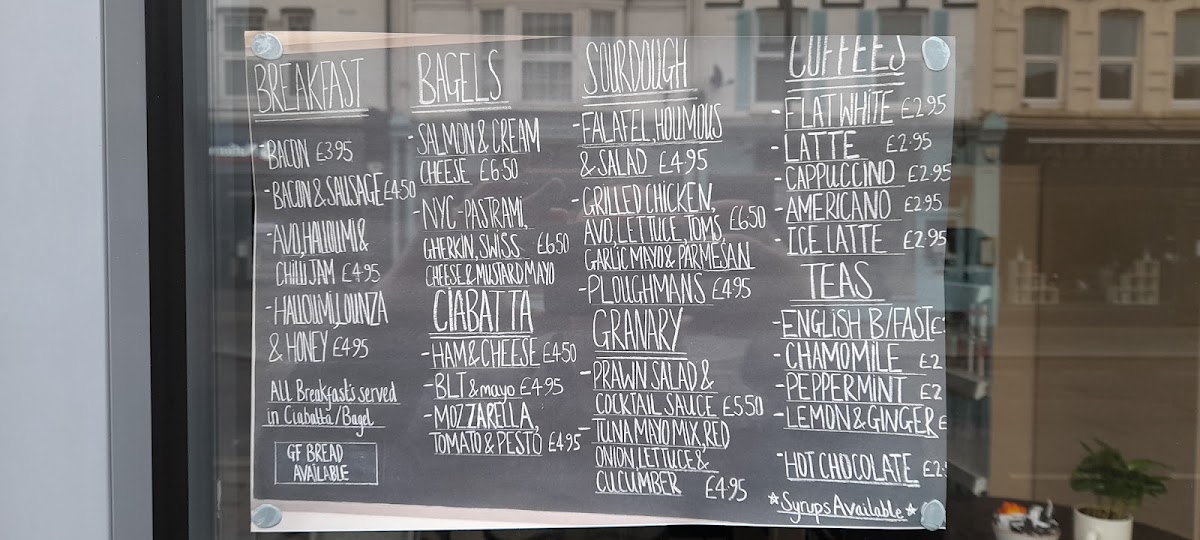 BREAKFAST
-BACON £3.95
-BACON & SAUSAGE £4.50
-AVO, HALLOUMI &
CHILLI JAM £4.95
-HALLOUMI, QUINZA
& HONEY £4.95
ALL Breakfast's served
in Ciabatta/Bagel
GF BREAD
AVAILABLE
BAGELS
-SALMON & CREAM
CHEESE £6.50
-NYC-PASTRAMI,
GHERKIN, SWISS £6.50
CHEESE & MUSTARD MAYO
CIABATTA
-HAM & CHEESE £4.50
-BLT & mayo £4.95
-MOZZARELLA,
TOMATO & PESTO £4.95
SOURDOUGH
-FALAFEL, HOUMOUS
& SALAD £4.95
-GRILLED CHICKEN,
AVO, LETTUCE, TOMS, £6.50
GARLIC MAYO & PARMESAN
-PLOUGHMANS £4.95
GRANARY
-PRAWN SALAD &
COCKTAIL SAUCE £5.50
-TUNA MAYO MIX, RED
ONION LETTUCE &
CUCUMBER £4.95
COFFEES
-FLAT WHITE £2.95
-LATTE £2.95
-CAPPUCCINO £2.95
-AMERICANO £2.95
-ICE LATTE £2.95
TEAS
-ENGLISH B/FAST £
-CHAMOMILE £2
-PEPPERMINT £2
-LEMON & GINGER £
-HOT CHOCOLATE £2.
*Syrups Available*